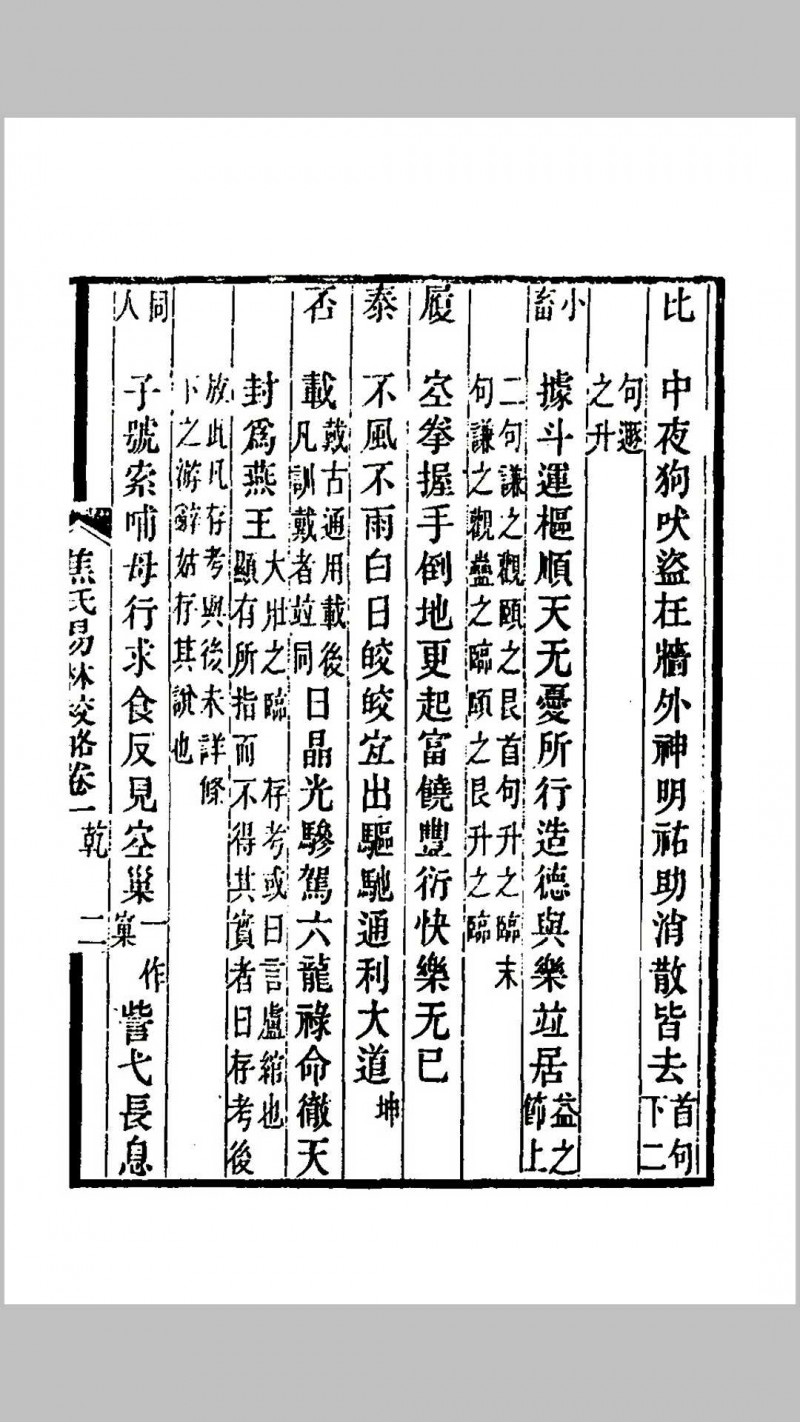 比 中夜狗吠盜在牆外神明祐助消散皆去首句下二
句遯之升
小畜 據斗運樞順天无憂所行造德與樂竝居益之節上
二句謙之觀頤之艮首句升之臨末句謙之觀蠱之臨頤之艮升之臨
履 空拳握手倒地更起富饒豐衍快樂无已
泰 不風不雨白日皎皎宜出驅馳通利大道坤
否 載戴古通用載後凡訓戴者竝同日晶光驂駕六龍祿命徹天
封爲燕王大壯之臨 存考或曰言盧綰也顯有所指而不得其實者曰存考後
放此凡存考與後未詳條下之游辭姑存其說也
同人 子號索哺母行求食反見空巢一作窠訾弋長息
焦氏易林校略卷一 乾 二